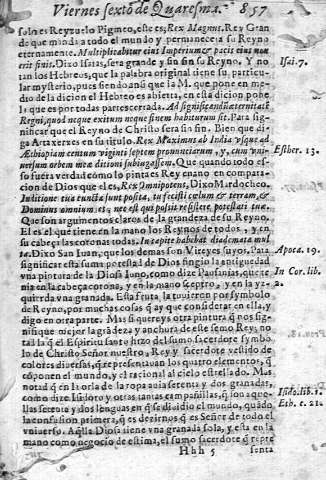 Viernes sexto de Quaresma. 857
solo es Reyzuelo Pigmeo, este es, Rex Magnus, Rey Gran
de que manda a todo el mundo y permanecera su Reyno
eternamente. Multiplicabitur eius Imperium & pacis eius non
erit finis. Dixo Isaias, sera grande y sin fin su Reyno. Y no
tan los Hebreos, que la palabra original tiene su particu-
lar mysterio, pues siendo ansi que la M. que ponen en me-
dio de la dicion el Hebreo es abierta, en esta dicion pone
la que es por todas partes cerrada. Ad significandã æternitatẽ
Regni, quod neque exitum neque finem habiturum sit. Para sig
nificar que el Reyno de Christo sera sin fin. Bien que di-
ga Artaxerxes en su titulo. Rex Maximus ab India vsque ad
Æthiopiam centum viginti septem prouinciarum, y, cum vni-
uersum orbem meæ ditioni subiugassem. Que quando todo es-
so fuera verdad como lo pinta es Rey enano en compara-
cion de Dios que el es, Rex Omnipotens, Dixo Mardocheo.
In ditione tua cuncta sunt posita, tu fecisti cælum & terram, &
Dominus omnium es, nec est qui possit resistere potestati tuæ.
Que son argumentos claros de la grandeza de su Reyno.
El es el que tiene en la mano los Reynos de todos, y en
su cabeça las coronas todas. In capite habebat diademata mul
ta. Dixo San Iuan, que los demas son Virreyes suyos. Para
significar esta suma potestad de Dios fingio la antiguedad
vna pintura de la Diosa Iuno, como dize Pausanias, que te
nia en la cabeça corona, y en la mano sceptro, y en la yz-
quierda vna granada. Esta fruta la tuuieron por symbolo
de Reyno, por muchas cosas q̃ ay que considerar en ella, y
digo en otra parte. Mas si quereys otra pintura q̃ nos sig-
nifique mejor la grãdeza y anchura de este sumo Rey; no
tad la q̃ el Espiritu santo hizo del sumo sacerdote symbo
lo de Christo Señor nuestro, Rey y sacerdote vestido de
colores diuersas, q̃ representauan los quatro elementos, q̃
cõponen el mundo, y el racional al cielo estrellado. Mas
notad q̃ en la orla de la ropa auia setenta y dos granadas,
como dize Isidoro y otras tantas campanillas, q̃ son aque-
llas setenta y dos lenguas en q̃ se diuidio el mundo, quãdo
la confusion primera, q̃ es dezirnos q̃ es Señor de todo el
vniuerso. Aq̃lla Diosa tiene vna granada sola, y esta en la
mano como negocio de estima, el sumo sacerdote q̃ repre
Hhh 5 senta
Isai. 7.
Esther. 13.
Apoca. 19.
In Cor. lib.
2.
Isido. lib. 1.
Eth. c. 21.